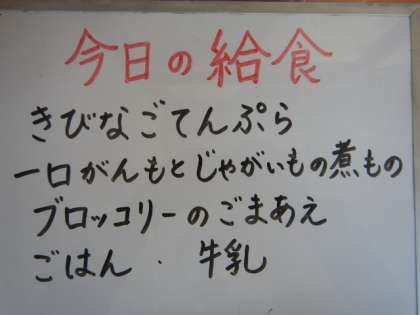 今日の給食
きびなごてんぷら
一口がんもとじゃがいもの煮もの
ブロッコリーのごまあえ
ごはん・牛乳